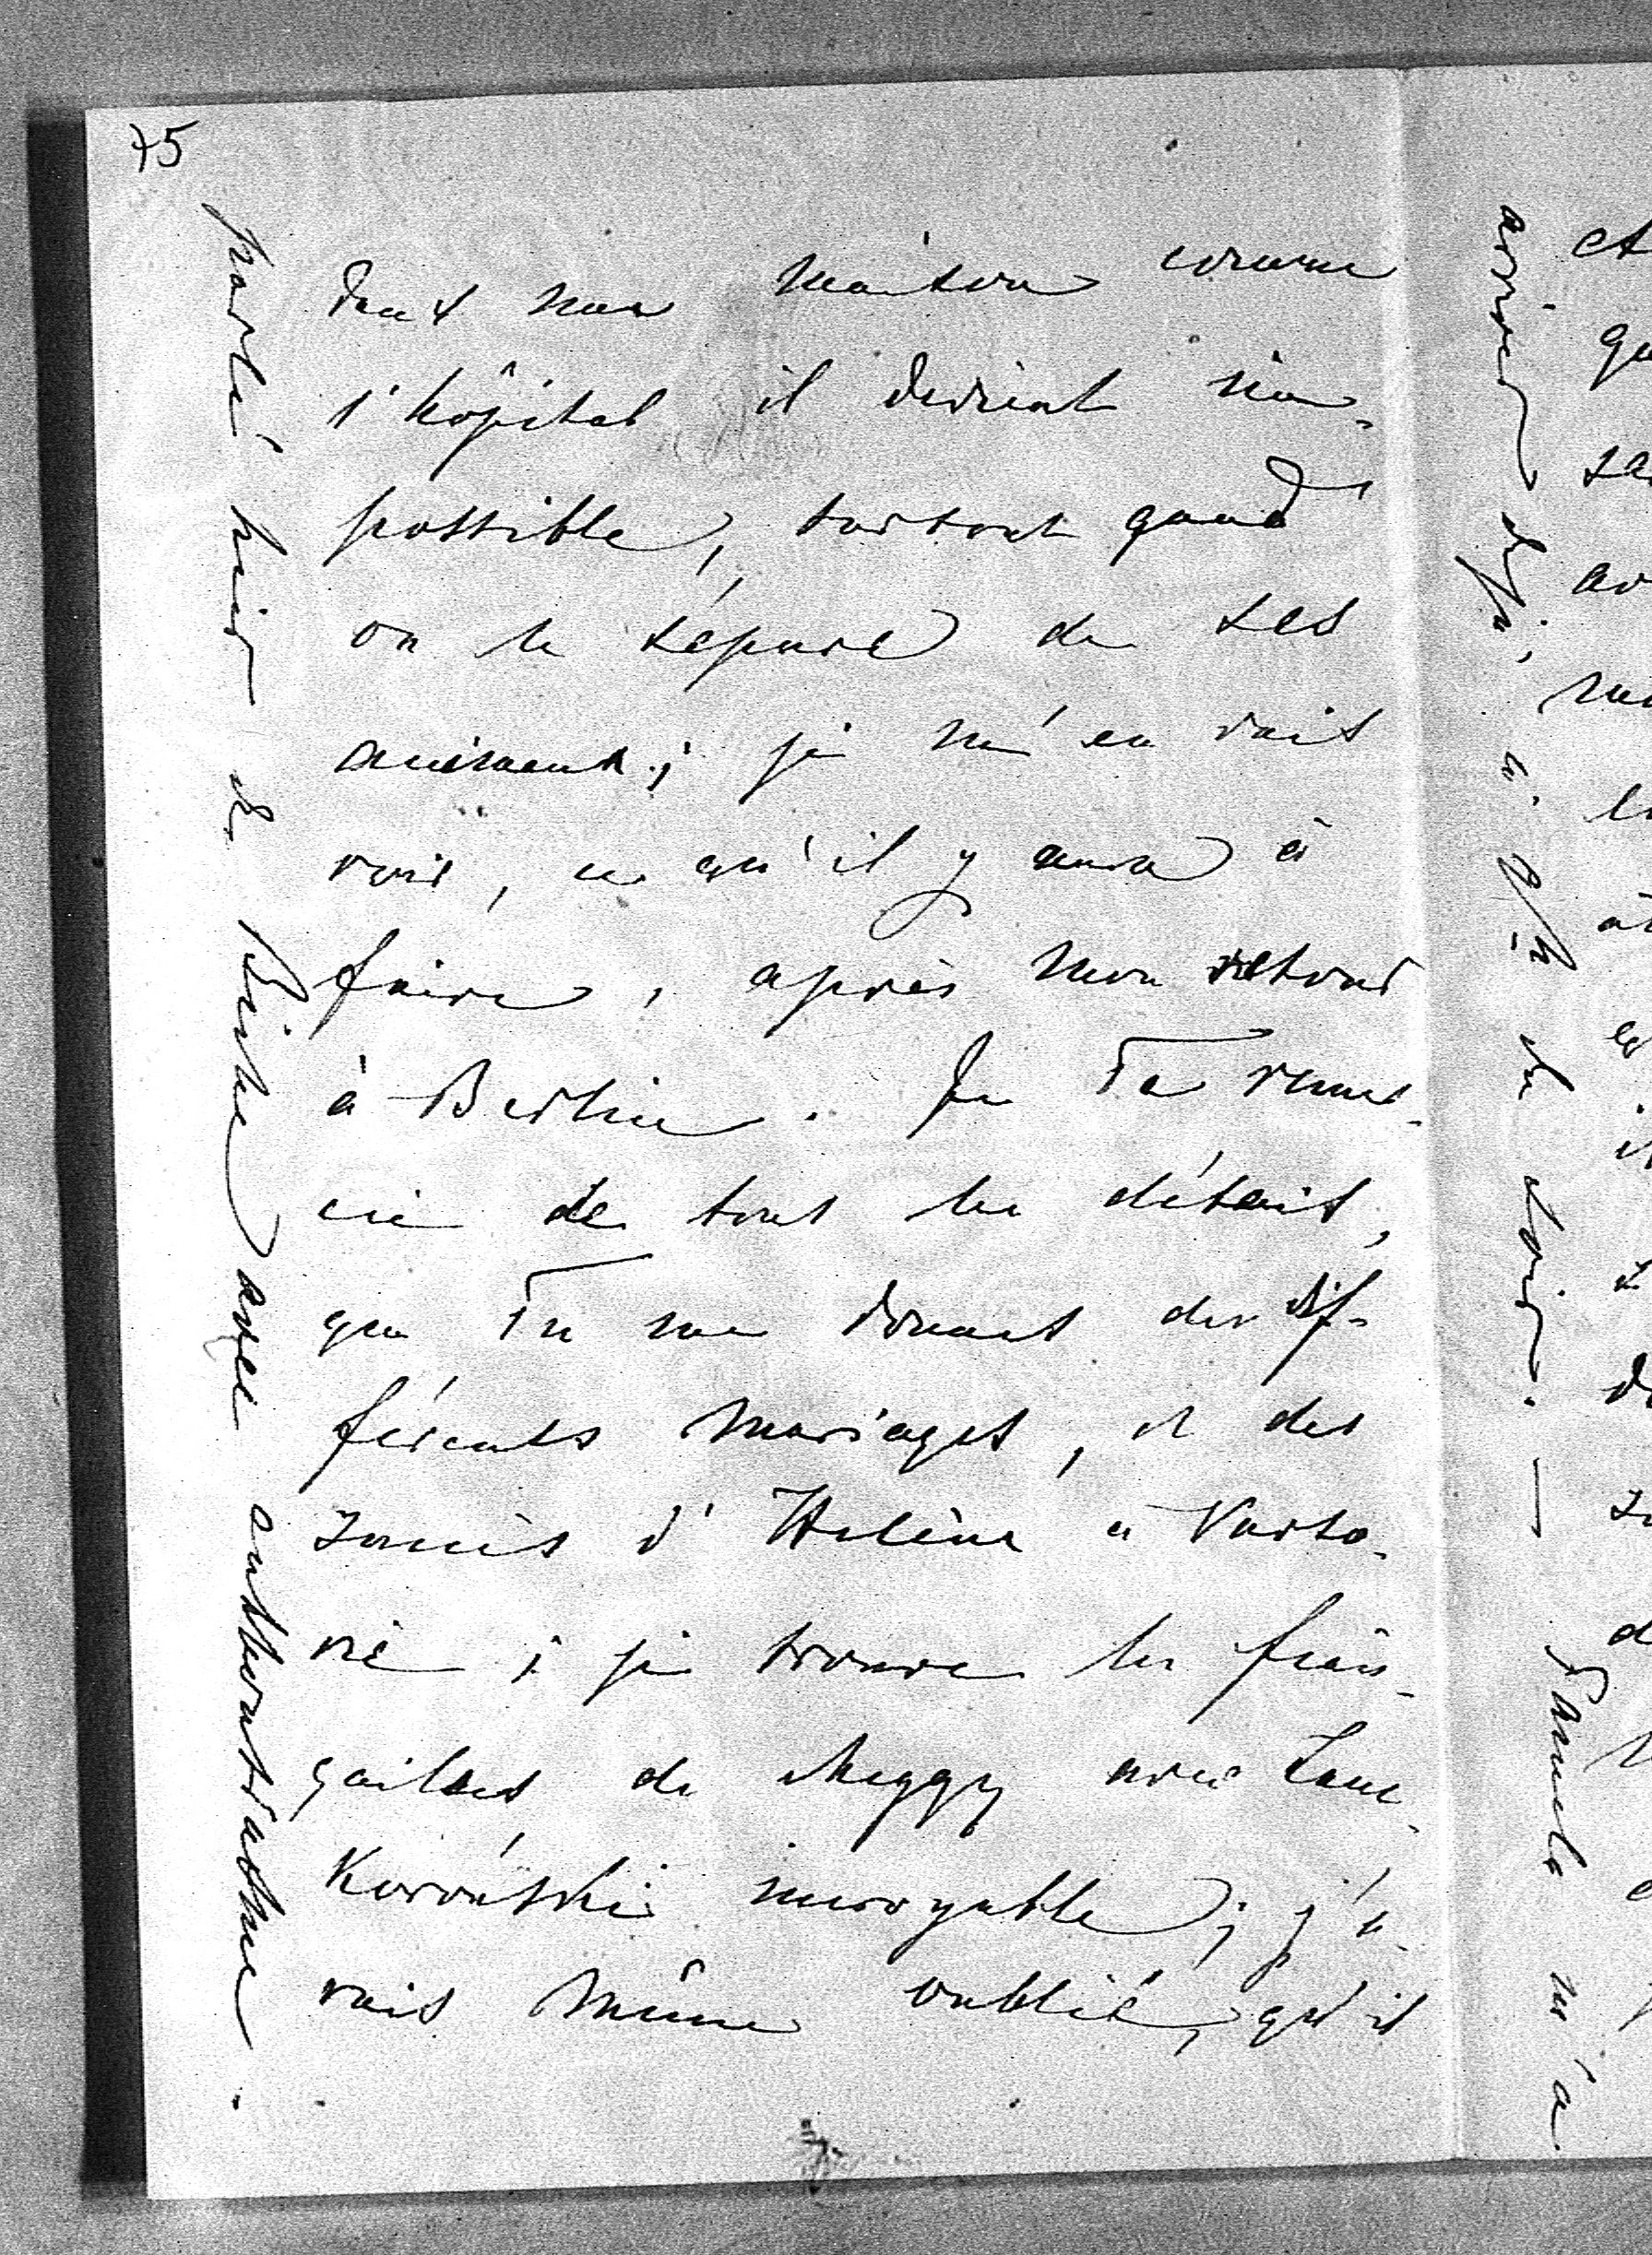 75
dans une maison comme
l'hôpital il devient im-
possible, surtout quand
on le sépare de ses
animaux; je m'en vais
voir, ce qu'il y aura à
faire, après mon retour
à Berlin. Je Te remer-
cie de tous les détails,
que Tu me donnes des dif-
férents mariages, et des
soucis d'Helène à Varso-
vie; je trouve les fian-
çailles de Meggy avec Lanc-
Koroński incroyable; j'a-
vais même oublié, qu'il
parlé hier de Biske avec enthousiasme.
arrivés déjà, à 9 h du soir. —
Pamela m'a